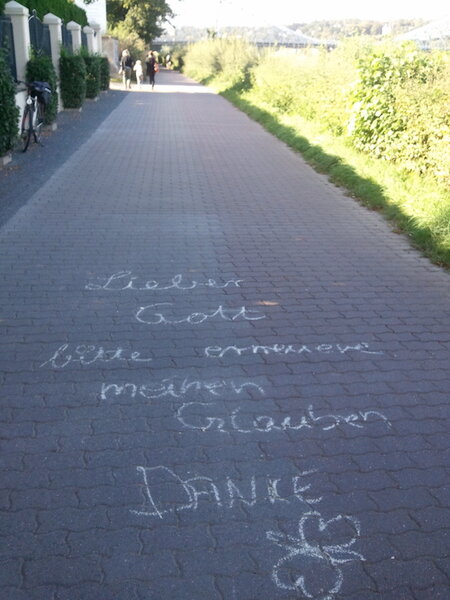 Lieber
Gott
bitte erneuere
meinen
Glauben
DANKE